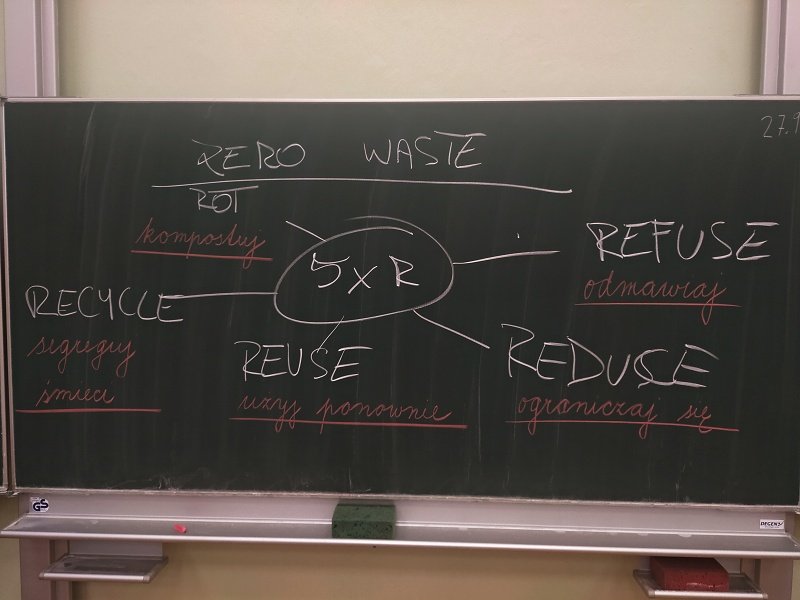 27.9
ZERO WASTE
ROT
kompostuj
5 x R
REFUSE
odmawiaj
RECYCLE
segreguj
śmieci
REUSE
użyj ponownie
REDUSE
ograniczaj się
GS